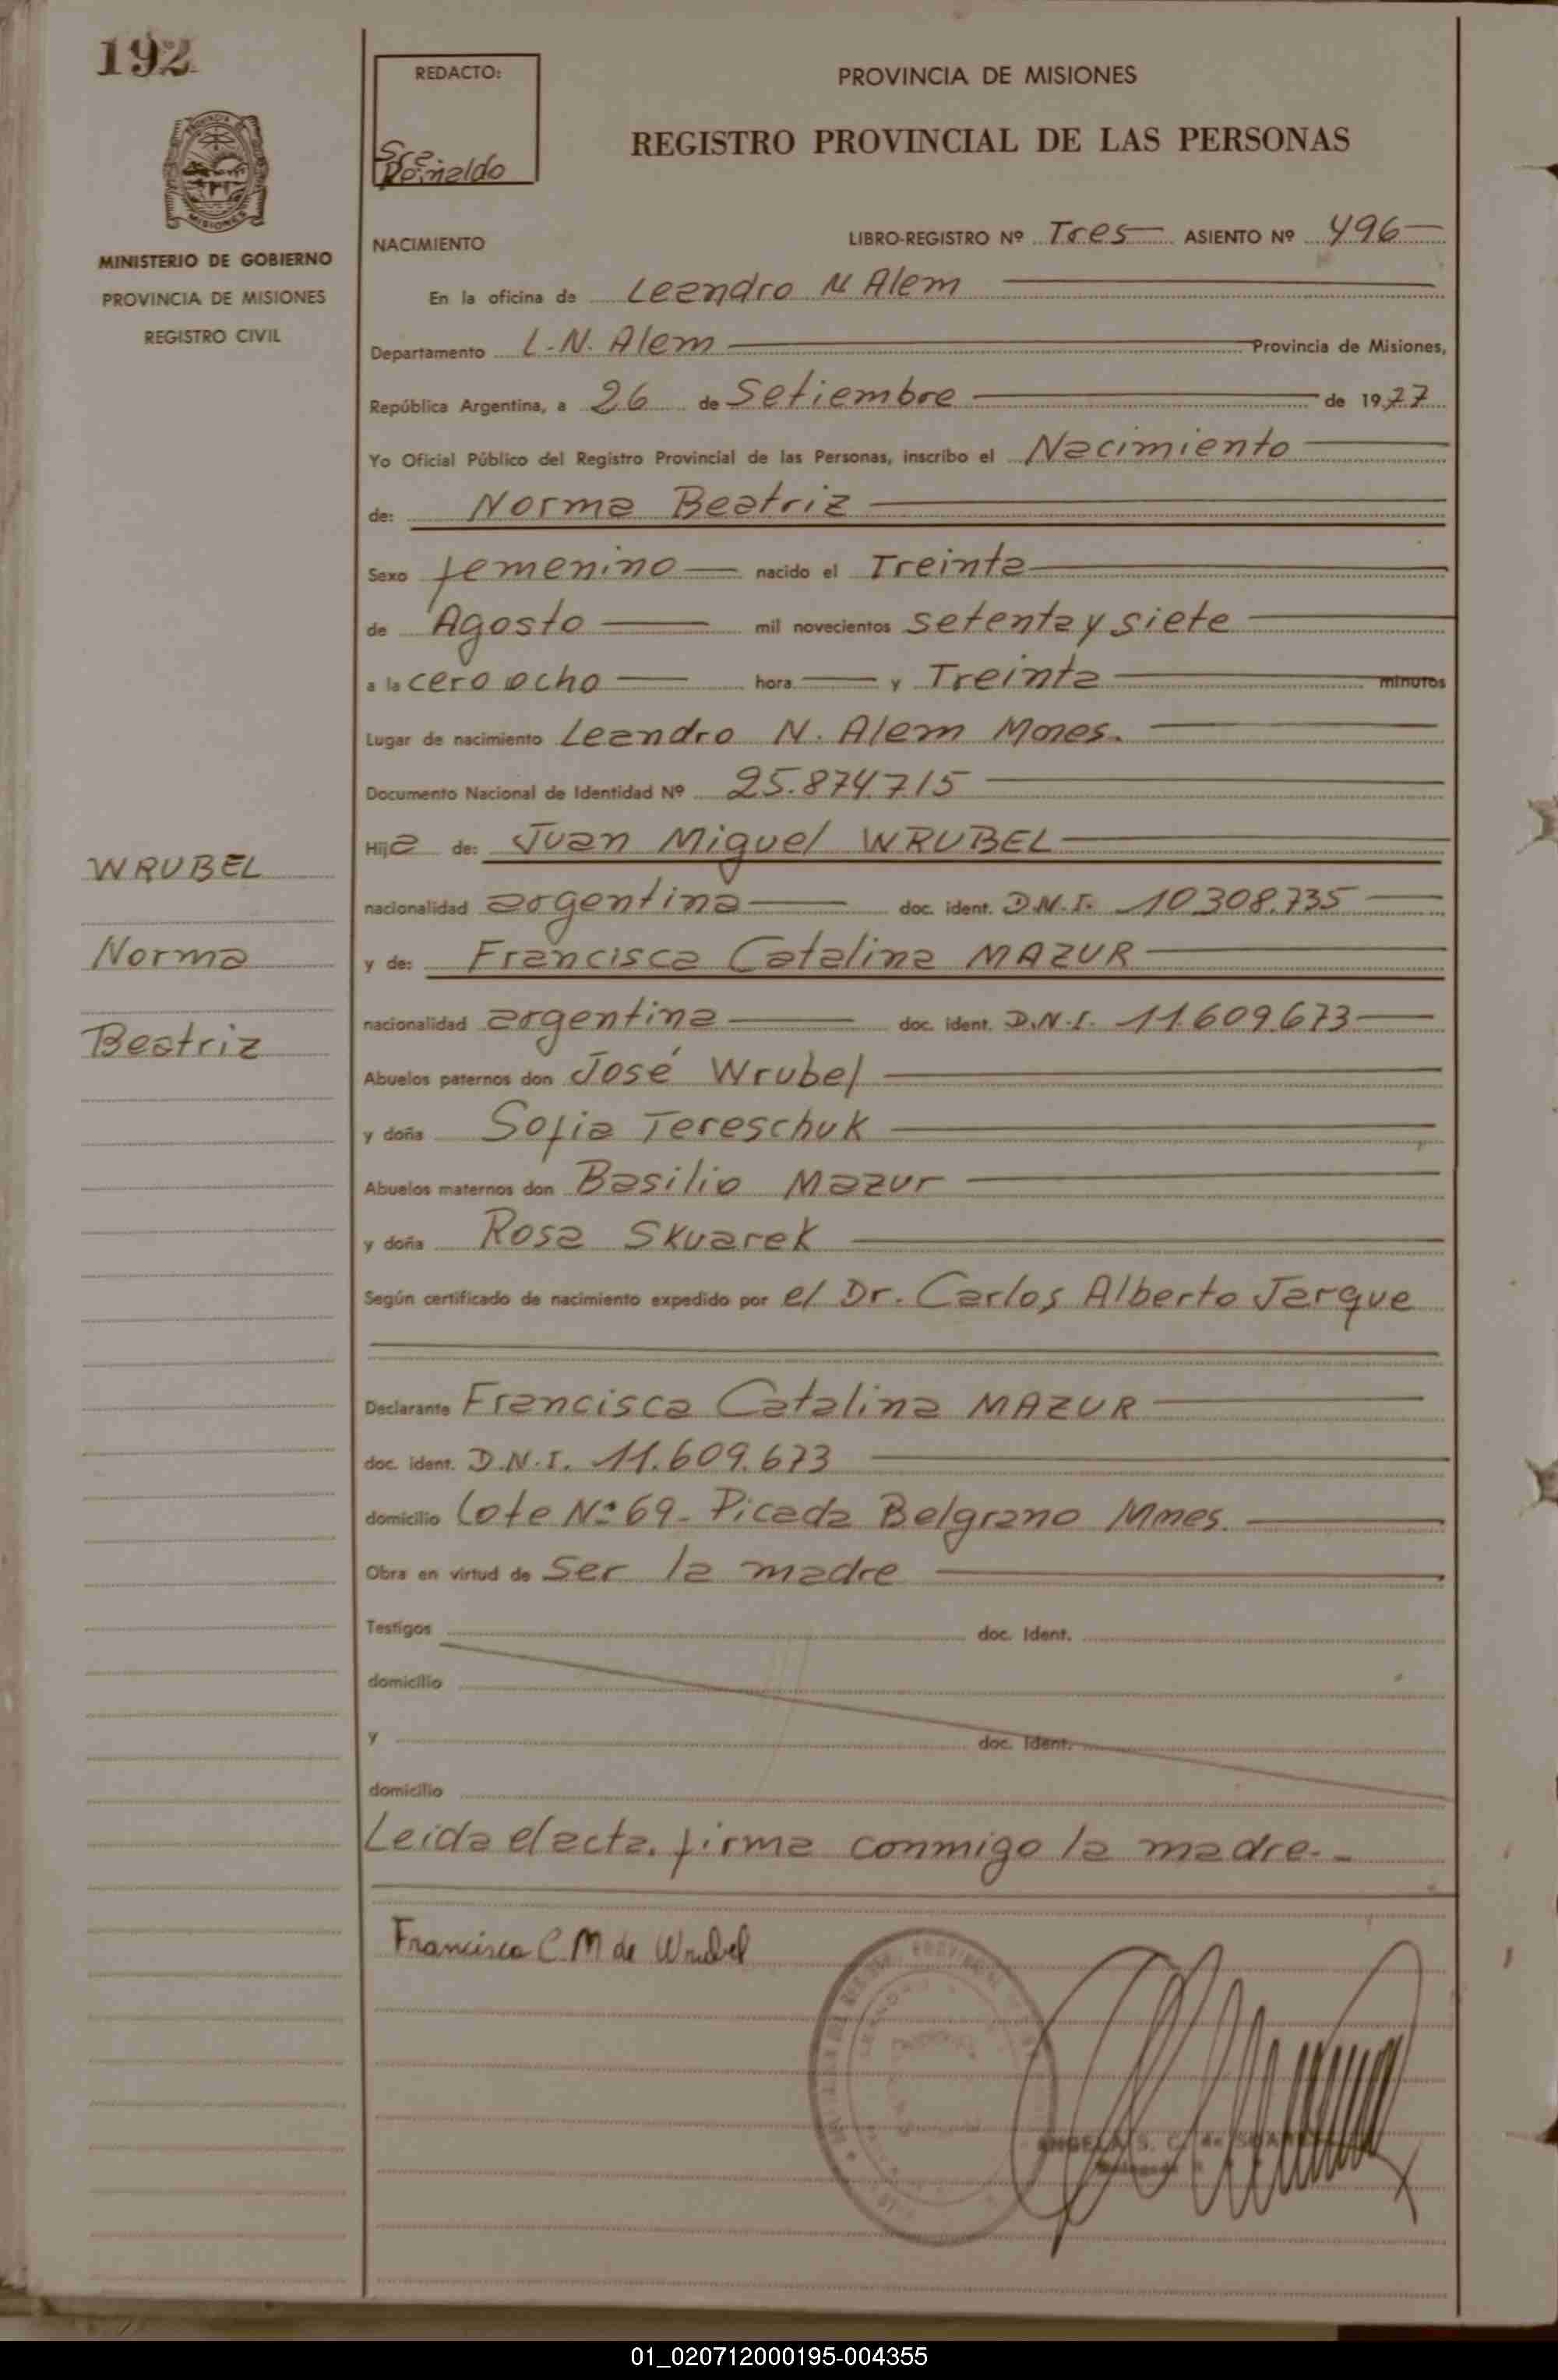 192
REDACTO:
Reinaldo
PROVINCIA DE MISIONES
REGISTRO PROVINCIAL DE LAS PERSONAS
MISIONES
MINISTERIO DE GOBIERNO
PROVINCIA DE MISIONES
REGISTRO CIVIL
NACIMIENTO
LIBRO-REGISTRO Nº Tres ASIENTO Nº 496
En la oficina de Leandro N Alem
Departamento L.N. Alem Provincia de Misiones,
República Argentina, a 26 de Setiembre de 1977
Yo Oficial Público del Registro Provincial de las Personas, inscribo el Nacimiento
de: Norma Beatriz
Sexo femenino nacido el Treinta
de Agosto mil novecientos setenta y siete
a la cero ocho hora y Treinta minutos
Lugar de nacimiento Leandro N. Alem Mnes.
Documento Nacional de Identidad Nº 25.874.715
Hija de: Juan Miguel WRUBEL
nacionalidad argentina doc. ident. D.N.I. 10.308.735
y de: Francisca Catalina MAZUR
nacionalidad argentina doc. ident. D.N.I. 11.609.673
Abuelos paternos don José Wrubel
y doña Sofia Tereschuk
Abuelos maternos don Basilio Mazur
y doña Rosa Skuarek
Según certificado de nacimiento expedido por el Dr. Carlos Alberto Jarque
Declarante Francisca Catalina MAZUR
doc. ident. D.N.I. 11.609.673
domicilio Lote Nº 69 - Picada Belgrano Mnes.
Obra en virtud de Ser la madre
Testigos doc. Ident.
domicilio
y doc. Ident.
domicilio
Leida el acta, firma conmigo la madre.-
Francisca C. M de Wrubel
WRUBEL
Norma
Beatriz
01_020712000195-004355